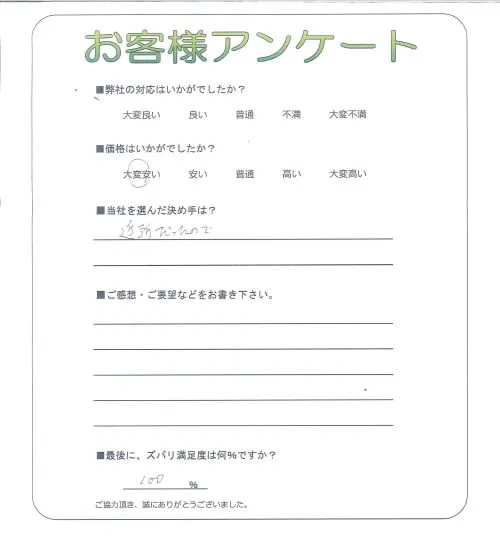 お客様アンケート
■弊社の対応はいかがでしたか？
大変良い 良い 普通 不満 大変不満
■価格はいかがでしたか？
大変安い 安い 普通 高い 大変高い
■当社を選んだ決め手は？
近所だったので
■ご感想・ご要望などをお書き下さい。
■最後に、ズバリ満足度は何%ですか？
100 %
ご協力頂き、誠にありがとうございました。